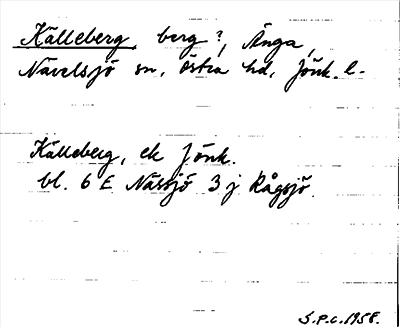 Källeberg, berg?, Änga,
Nävelsjö sn, Östra hd, Jönk. l.
Källeberg, ek Jönk.
bl. 6 E Nässjö 3 j Rågsjö.
S.P.C. 1958.